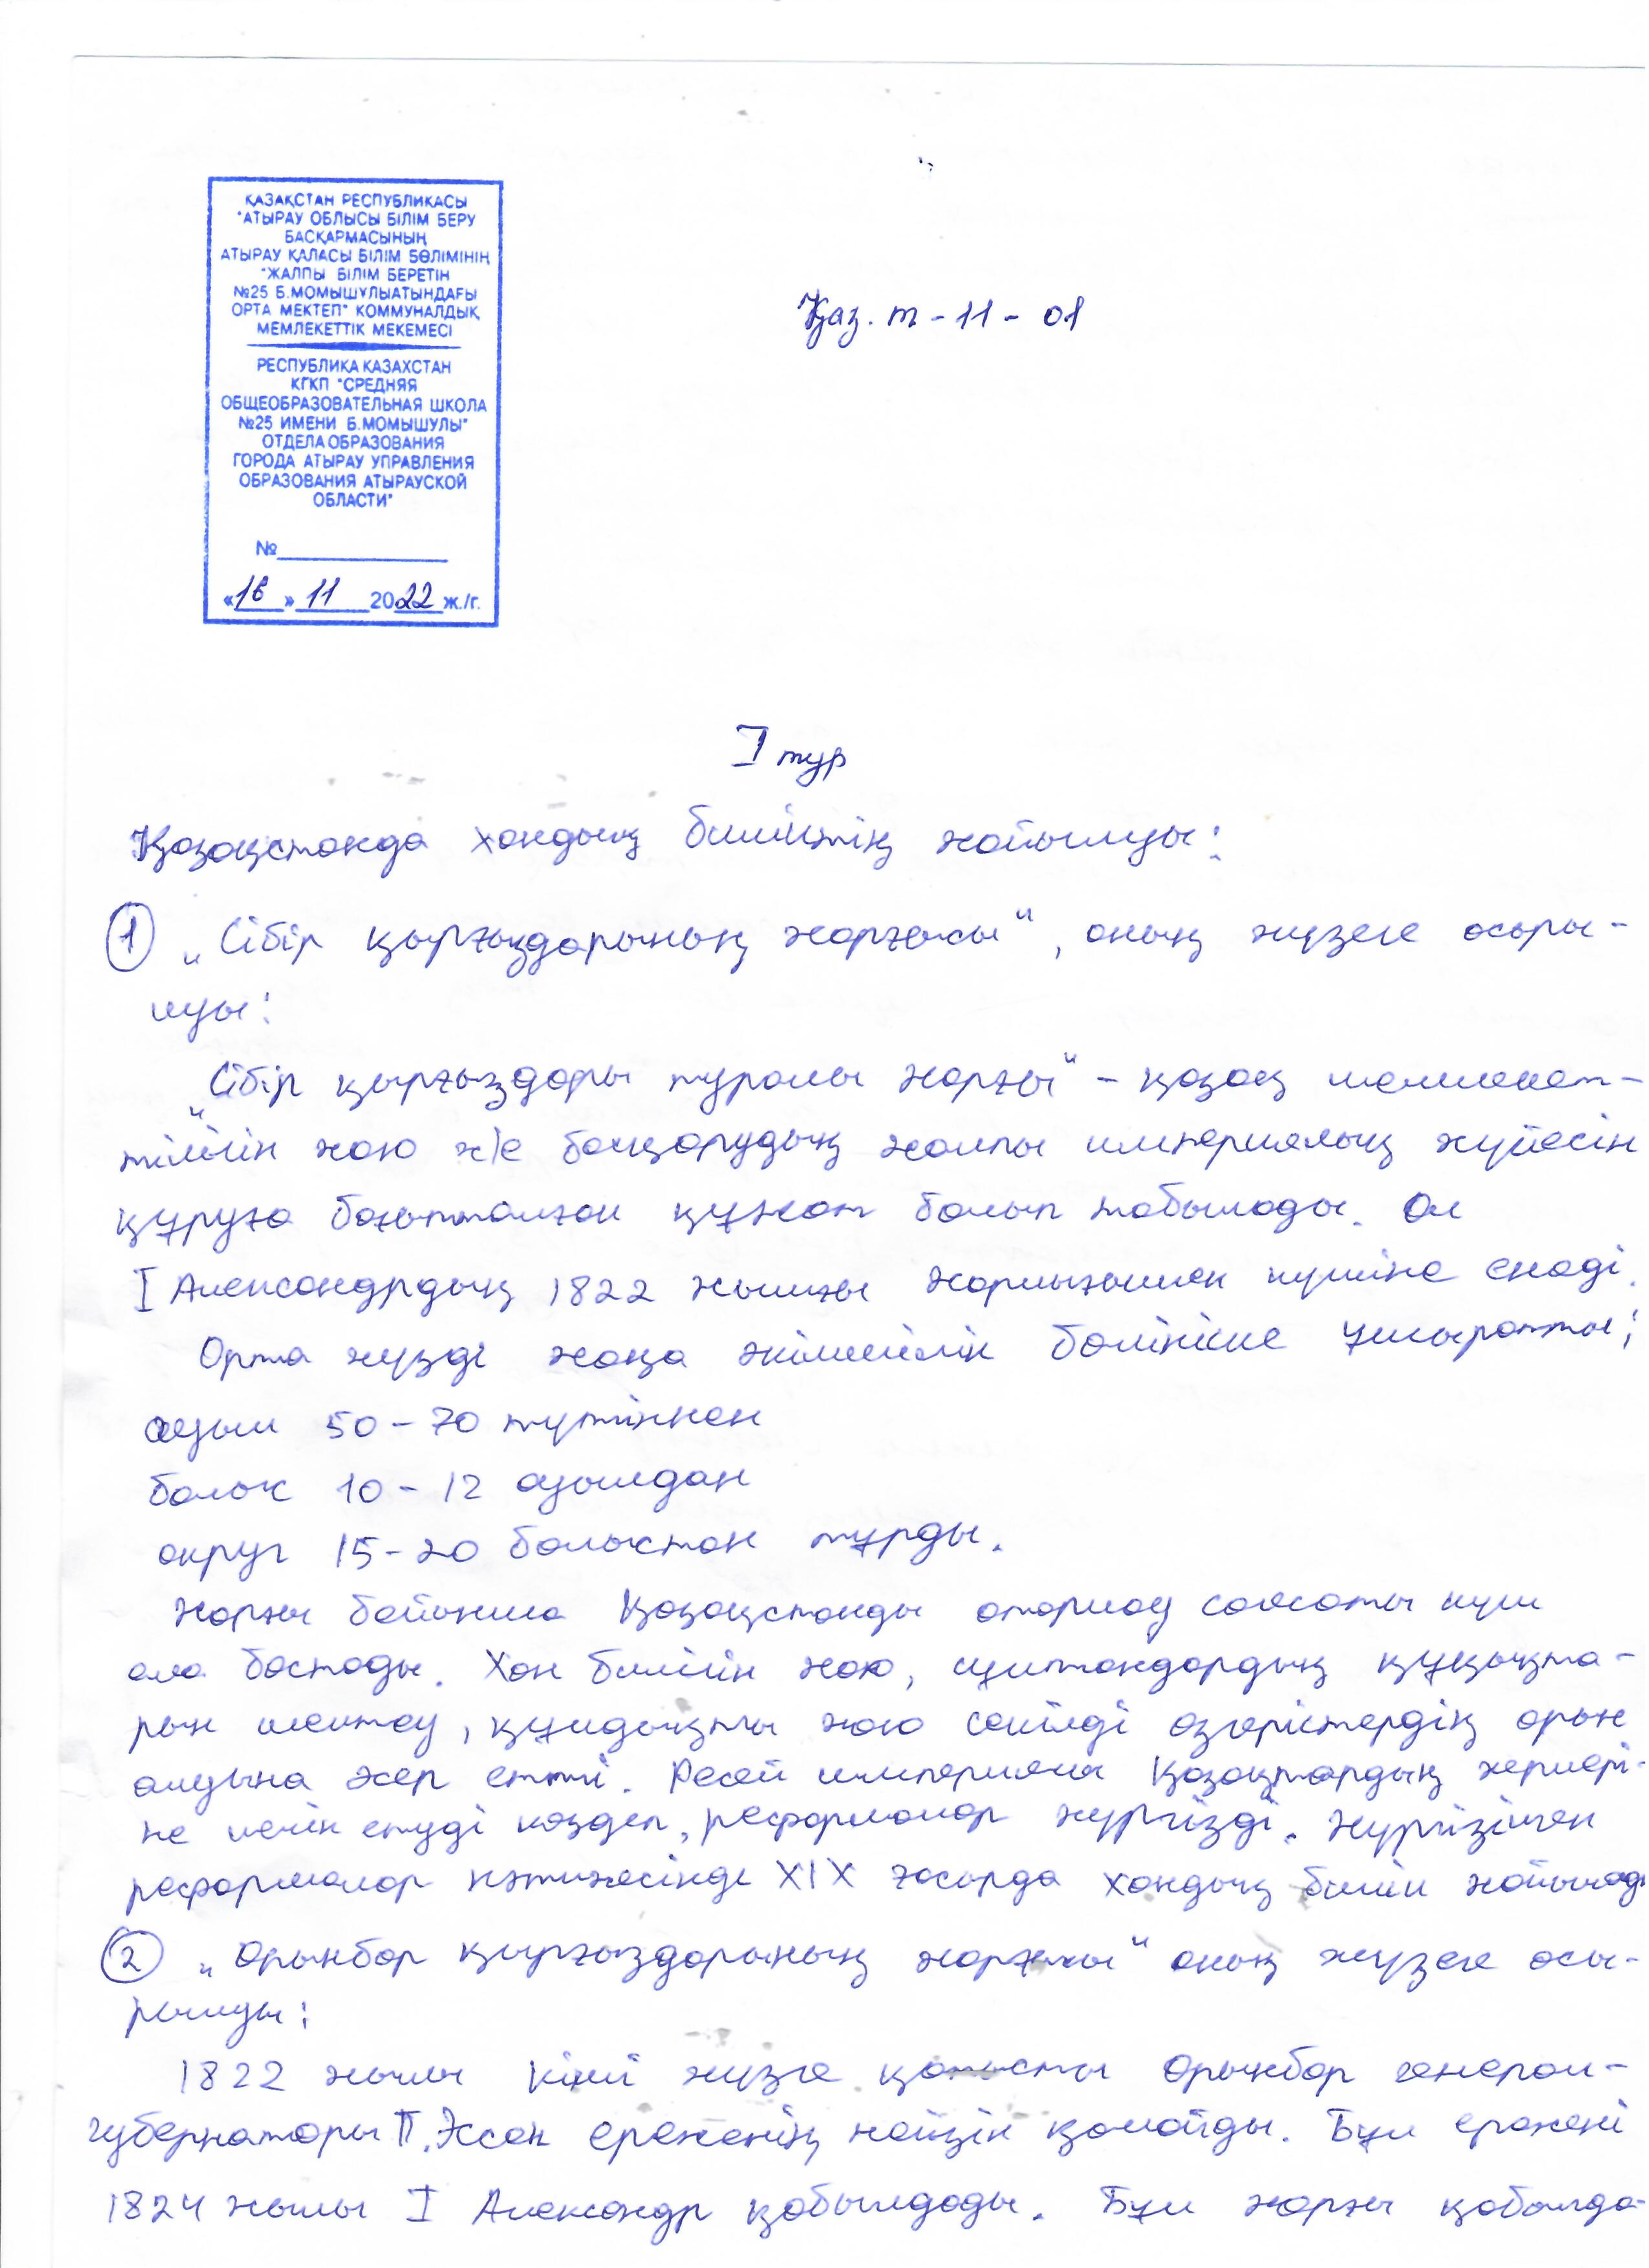 ҚАЗАҚСТАН РЕСПУБЛИКАСЫ
"АТЫРАУ ОБЛЫСЫ БІЛІМ БЕРУ
БАСҚАРМАСЫНЫҢ
АТЫРАУ ҚАЛАСЫ БІЛІМ БӨЛІМІНІҢ
"ЖАЛПЫ БІЛІМ БЕРЕТІН
№25 Б.МОМЫШҰЛЫАТЫНДАҒЫ
ОРТА МЕКТЕП" КОММУНАЛДЫҚ
МЕМЛЕКЕТТІК МЕКЕМЕСІ
РЕСПУБЛИКА КАЗАХСТАН
КГКП "СРЕДНЯЯ
ОБЩЕОБРАЗОВАТЕЛЬНАЯ ШКОЛА
№25 ИМЕНИ Б.МОМЫШУЛЫ"
ОТДЕЛА ОБРАЗОВАНИЯ
ГОРОДА АТЫРАУ УПРАВЛЕНИЯ
ОБРАЗОВАНИЯ АТЫРАУСКОЙ
ОБЛАСТИ"
№
«16» 11 2022 ж./г.
Қаз. т - 11 - 01
I тур
Қазақстанда хандық биліктің жойылуы:
1 „Сібір қырғыздарының жарғысы", оның жүзеге асыры-
луы:
„Сібір қырғыздары туралы жарғы" - қазақ мемлекет-
тілігін жою ж/е басқарудың жалпы империялық жүйесін
құруға бағытталған құжат болып табылады. Ол
I Александрдың 1822 жылғы жарлығымен күшіне енеді.
Орта жүзді жаңа әкімшілік бөлініске ұшыратты;
ауыл 50-70 түтіннен
болыс 10-12 ауылдан
округ 15-20 болыстан тұрды.
Жарғы бойынша Қазақстанды отарлау саясаты күш
ала бастады. Хан билігін жою, сұлтандардың құқықта-
рын шектеу, құлдықты жою секілді өзгерістердің орын
алуына әсер етті. Ресей империясы Қазақтардың жерлері-
не иелік етуді көздеп, реформалар жүргізді. Жүргізілген
реформалар нәтижесінде XIX ғасырда хандық билік жойылады
2 „Орынбор қырғыздарының жарғысы" оның жүзеге асы-
рылуы:
1822 жылы Кіші жүзге қатысты Орынбор генерал-
губернаторы П.Эссен ереженің нұсқасын қолайды. Бұл ережені
1824 жылы I Александр қабылдады. Бұл жарғы қабылда-